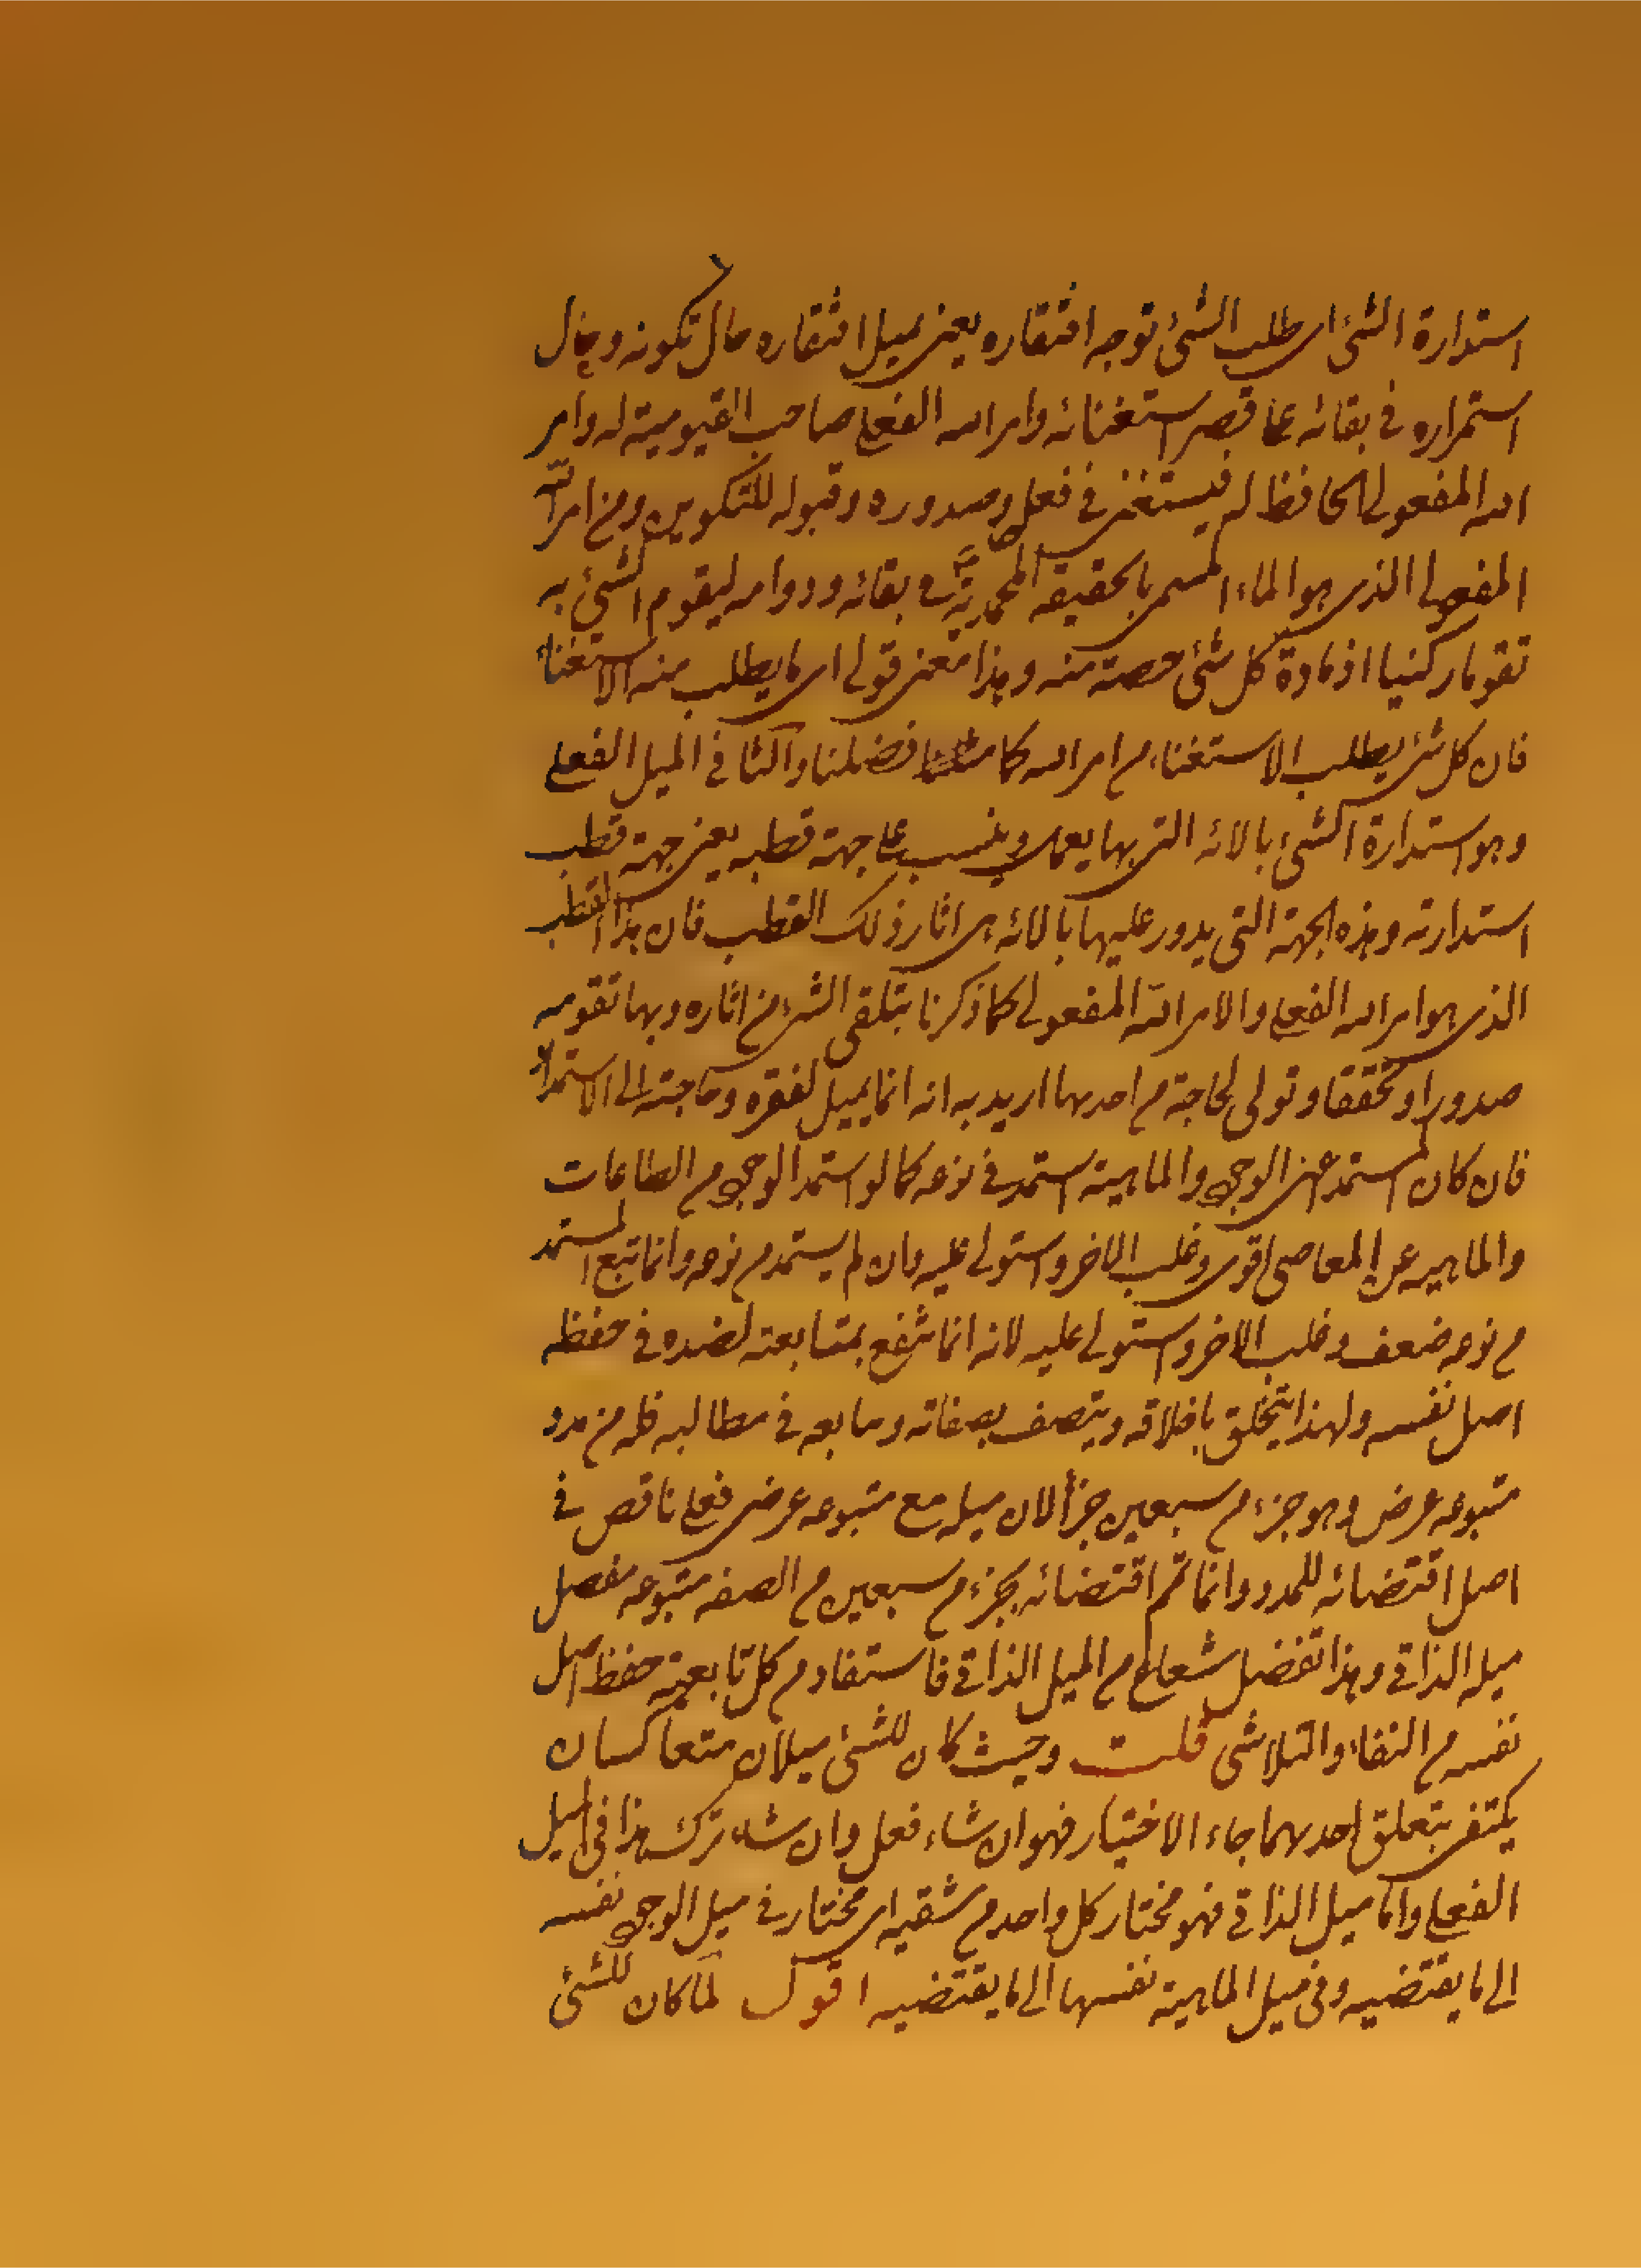 استدارة الشئ اى طلب الشئ توجه افتقاره يعنى بميل افتقاره حال تكونه وحال
استمراره فى بقائه على قصر استغنائه وامر الله الفعلى صاحب القيومية له وامر
الله المفعولى الحافظ له فيستغنى فى فعله وصدوره وقبوله للتكوين ومن امر الله
المفعولى الذى هو الماء المسمى بالحقيقة المحمدية فى بقائه ودوامه ليقوم الشئ به
تقوما ركنيا اذ مادة كل شئ حصة منه وهذا معنى قولى اى ما يطلب منه الاستغناء
فان كل شئ يطلب الاستغناء م امر الله كما فضلنا واكثا فى الميل الفعلى
وهو استدارة الشئ بالائه التى بها يعمل وينسب على جهة قطبه يعنى جهة قطب
استدارته وهذه الجهة التى يدور عليها بالائه هى اثار ذلك القطب فان هذا القطب
الذى هو امر الله الفعلى والامر الله المفعولى كما ذكرنا يتلقى الشئ من اثاره وبها تقومه
صدورا وتحققا وقولى لحاجة م احدهما اريد به انه انما يميل لفقره وحاجته الى الاستمداد
فان كان المستمد عنى الوجو والماهية استمد فى نوعه كما لو استمد الوجو م الطاعات
والماهيه عن المعاصى قوى وغلب الاخر واستولى عليه وان لم يستمد م نوعه وانما تبع المستمد
م نوعه ضعف وغلب الاخر واستولى عليه لانه انما شفع بمتابعته لضده فى حفظ
اصل نفسه ولهذا يتخلق باخلاقه ويتصف بصفاته وما بعه فى مطالبه فله من مدد
متبوعه عرض وهو جزء م سبعين جزأ لان ميله مع متبوعه عرضى فعلى ناقص فى
اصل اقتضائه للمدد وانما تم اقتضائه بجزء م سبعين م الصفه متبوعه مفصل
ميله الذاتى وهذا تفضل شعاع م الميل الذاتى فاستفاد م كل تابعية حفظ اصل
نفسه م النفاء والتلاشى قلت وحيث كان للشئ ميلان متعاكسان
يكتفى بتعلق احدهما جاء الاختيار فهو ان شاء فعل وان شاء ترك هذا فى الميل
الفعلى واما ميل الذاتى فهو مختار كل واحد م شقيه اى مختار فى ميل الوجو نفسه
الى ما يقتضيه وفى ميل الماهية نفسها الى ما يقتضيه اقول لما كان للشئ